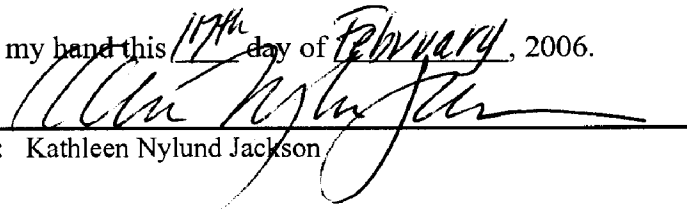 my hand this 17th day of February, 2006.
: Kathleen Nylund Jackson